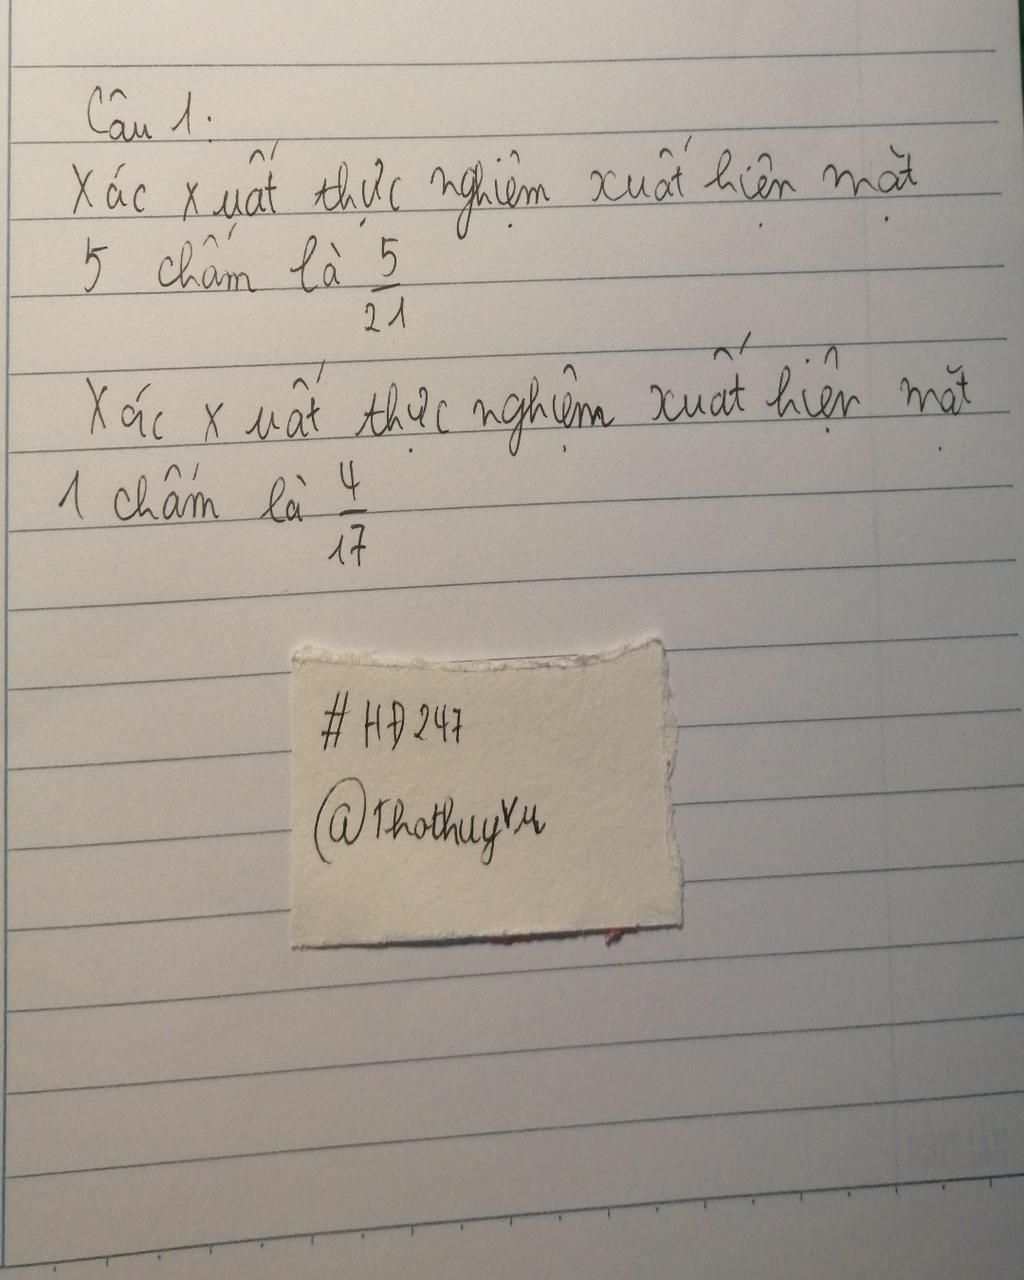 Câu 1:
Xác xuất thực nghiệm xuất hiện mặt
5 chấm là 5/21
Xác xuất thực nghiệm xuất hiện mặt
1 chấm là 4/17
#HĐ247
@Thothuyvu